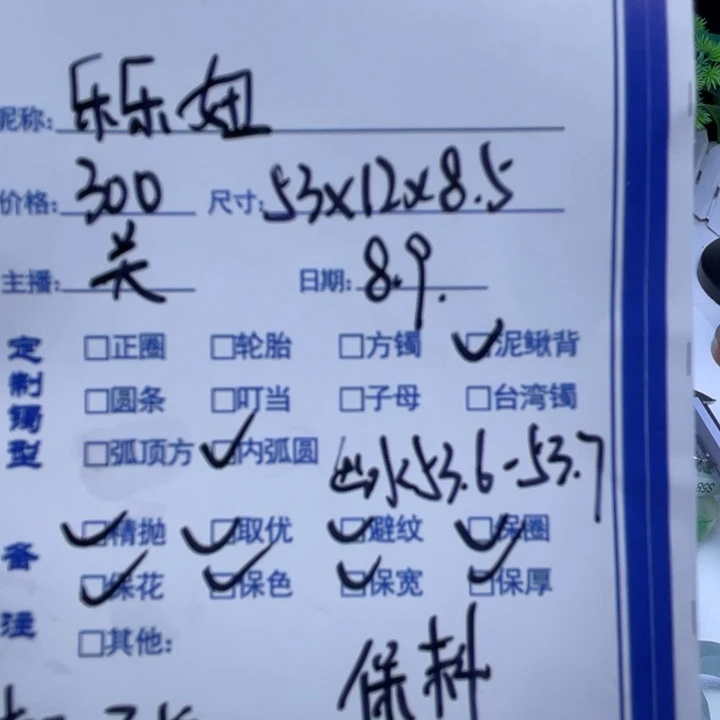 昵称: 乐乐妞
价格: 300 尺寸: 53x12x8.5
主播: 关 日期: 8.9.
定制镯型
□正圈 □轮胎 □方镯 ✓泥鳅背
□圆条 □叮当 □子母 □台湾镯
□弧顶方 ✓内弧圆 出水53.6-53.7
备注
✓精抛 ✓取优 ✓避纹 ✓保圈
✓保花 ✓保色 ✓保宽 ✓保厚
□其他:
保料